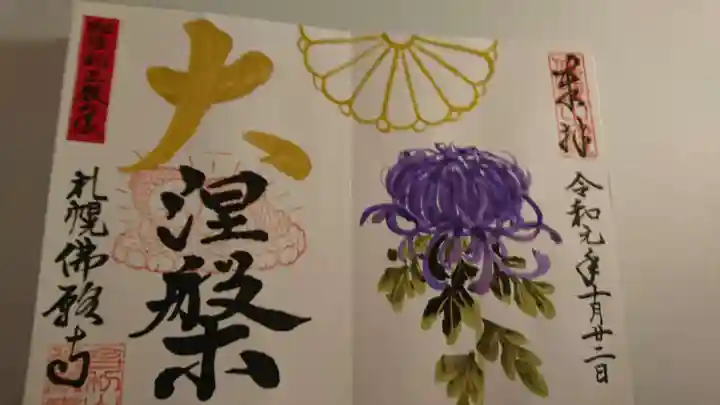 奉拝
令和元年十月廿二日
大
涅槃
札幌佛願寺